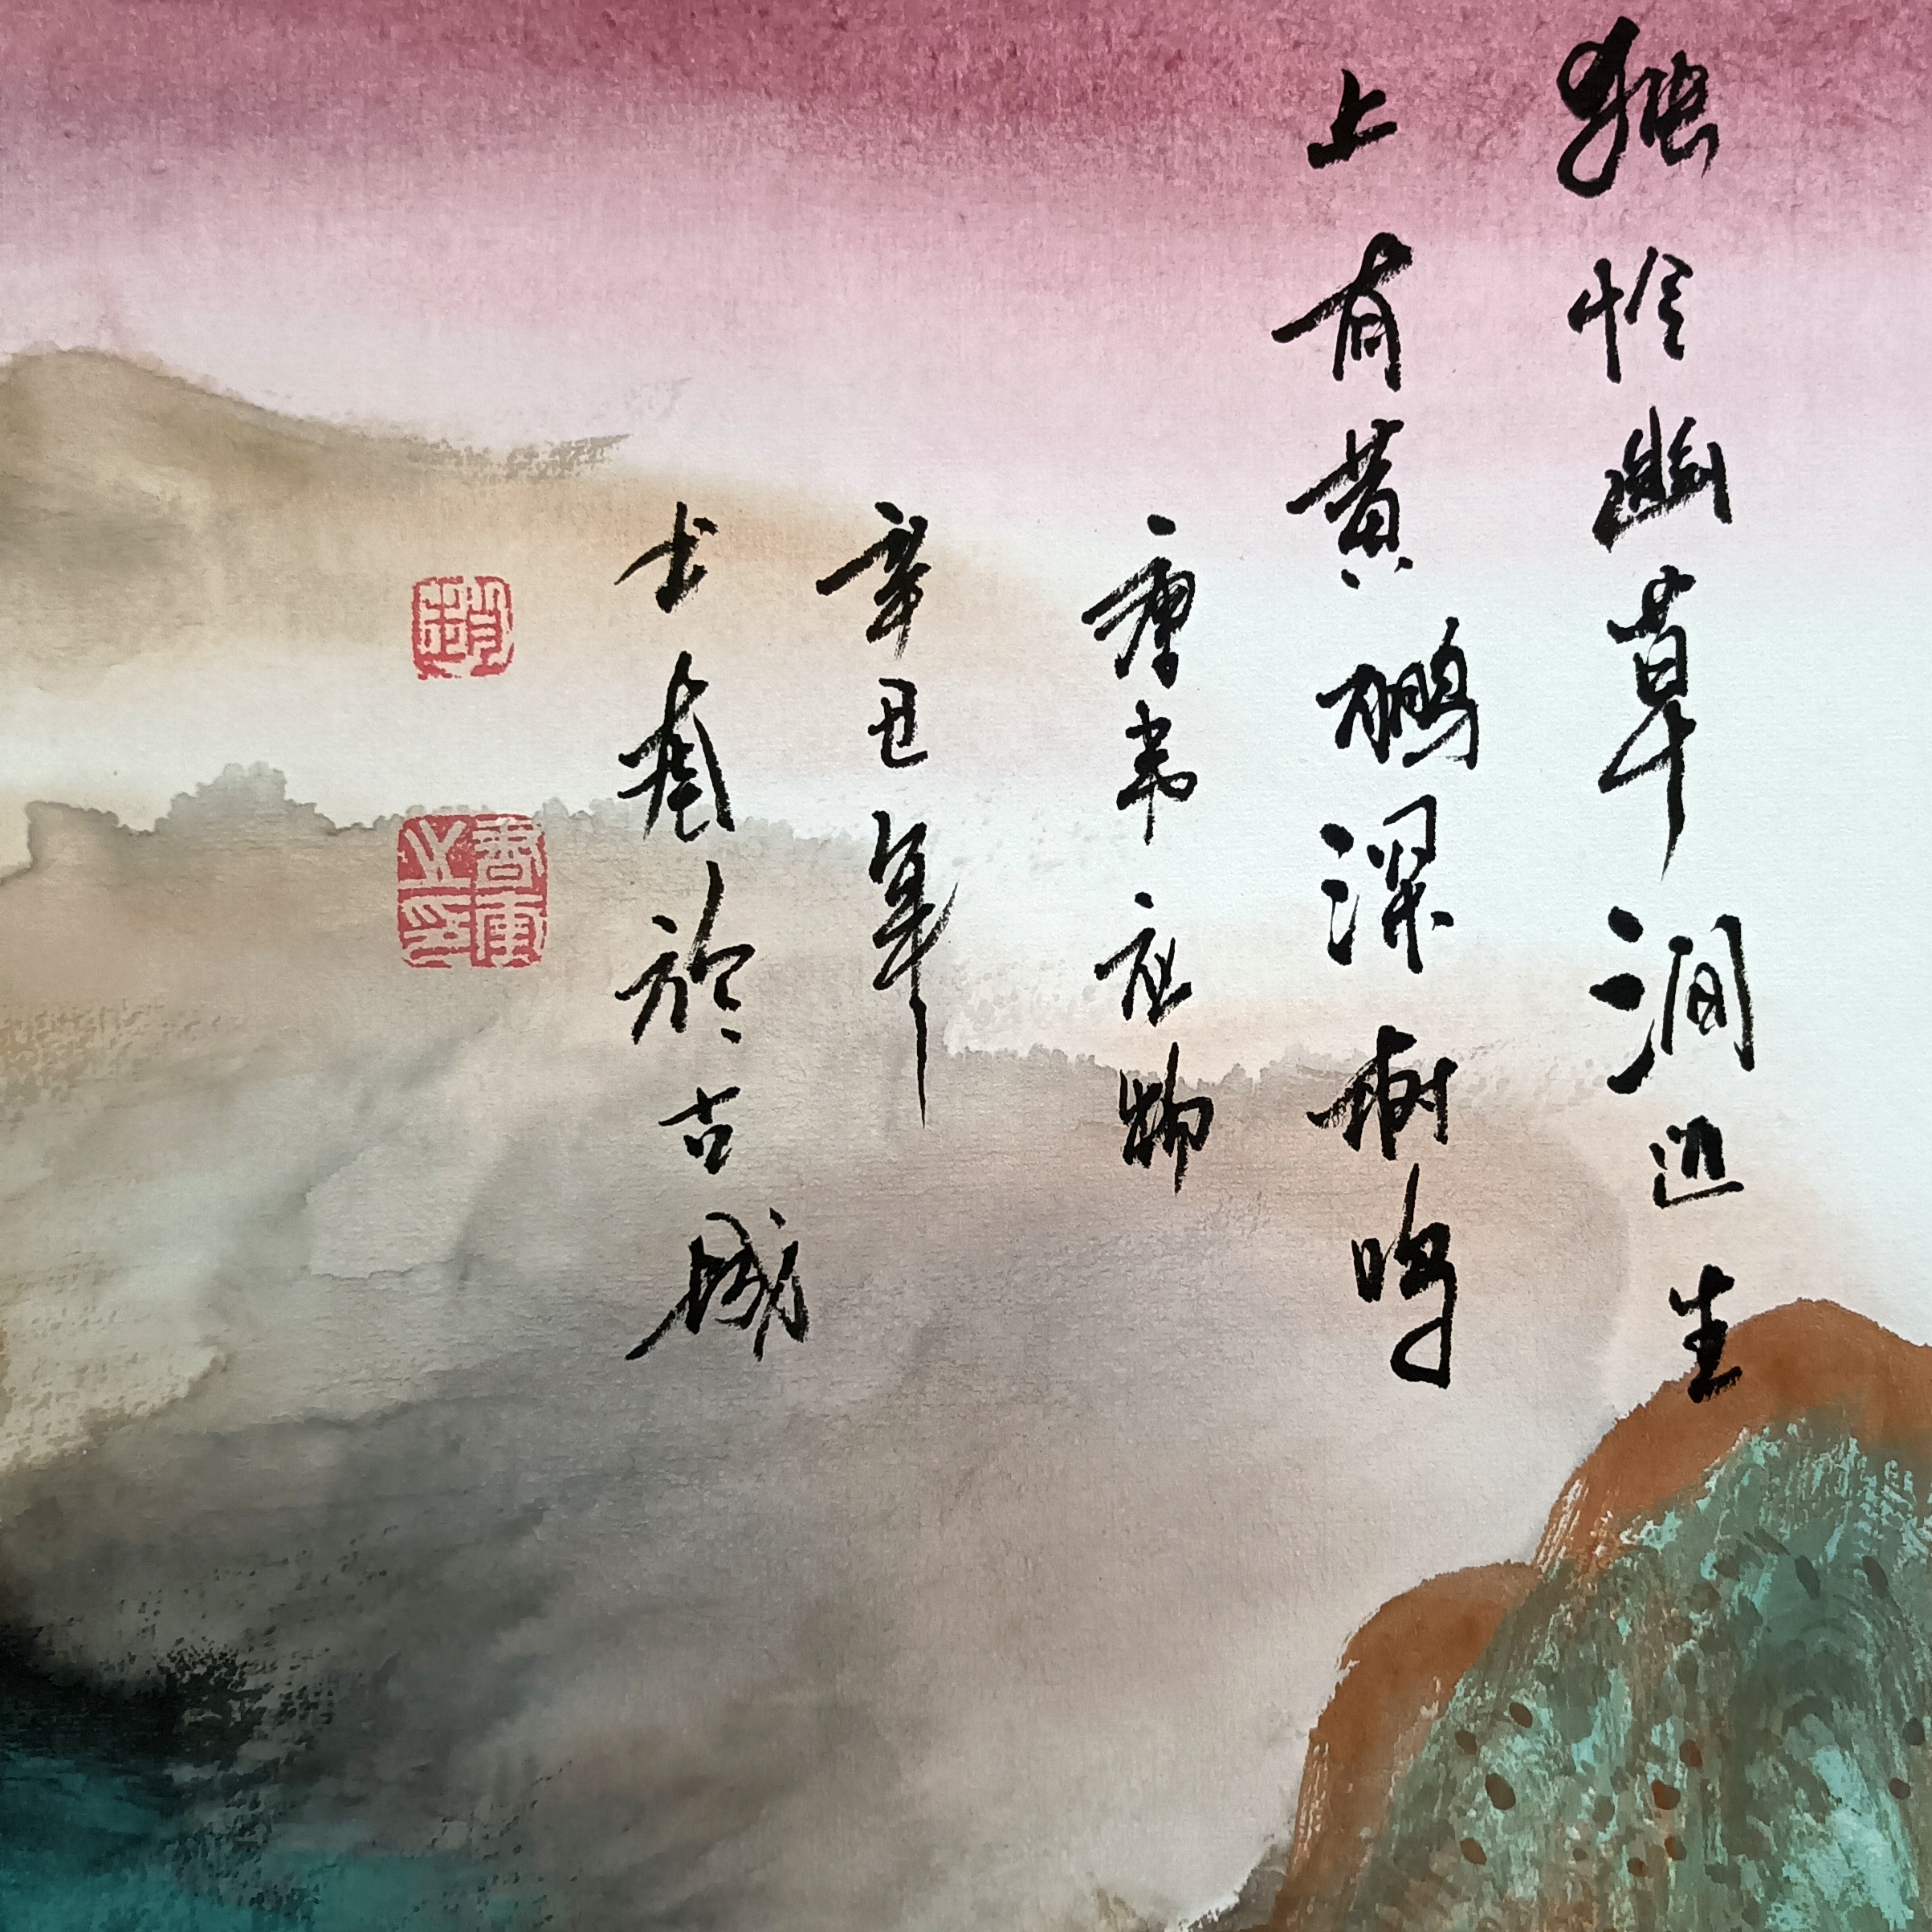 独怜幽草涧边生
上有黄鹂深树鸣
唐韦应物
辛丑年
於古城
趙
之印